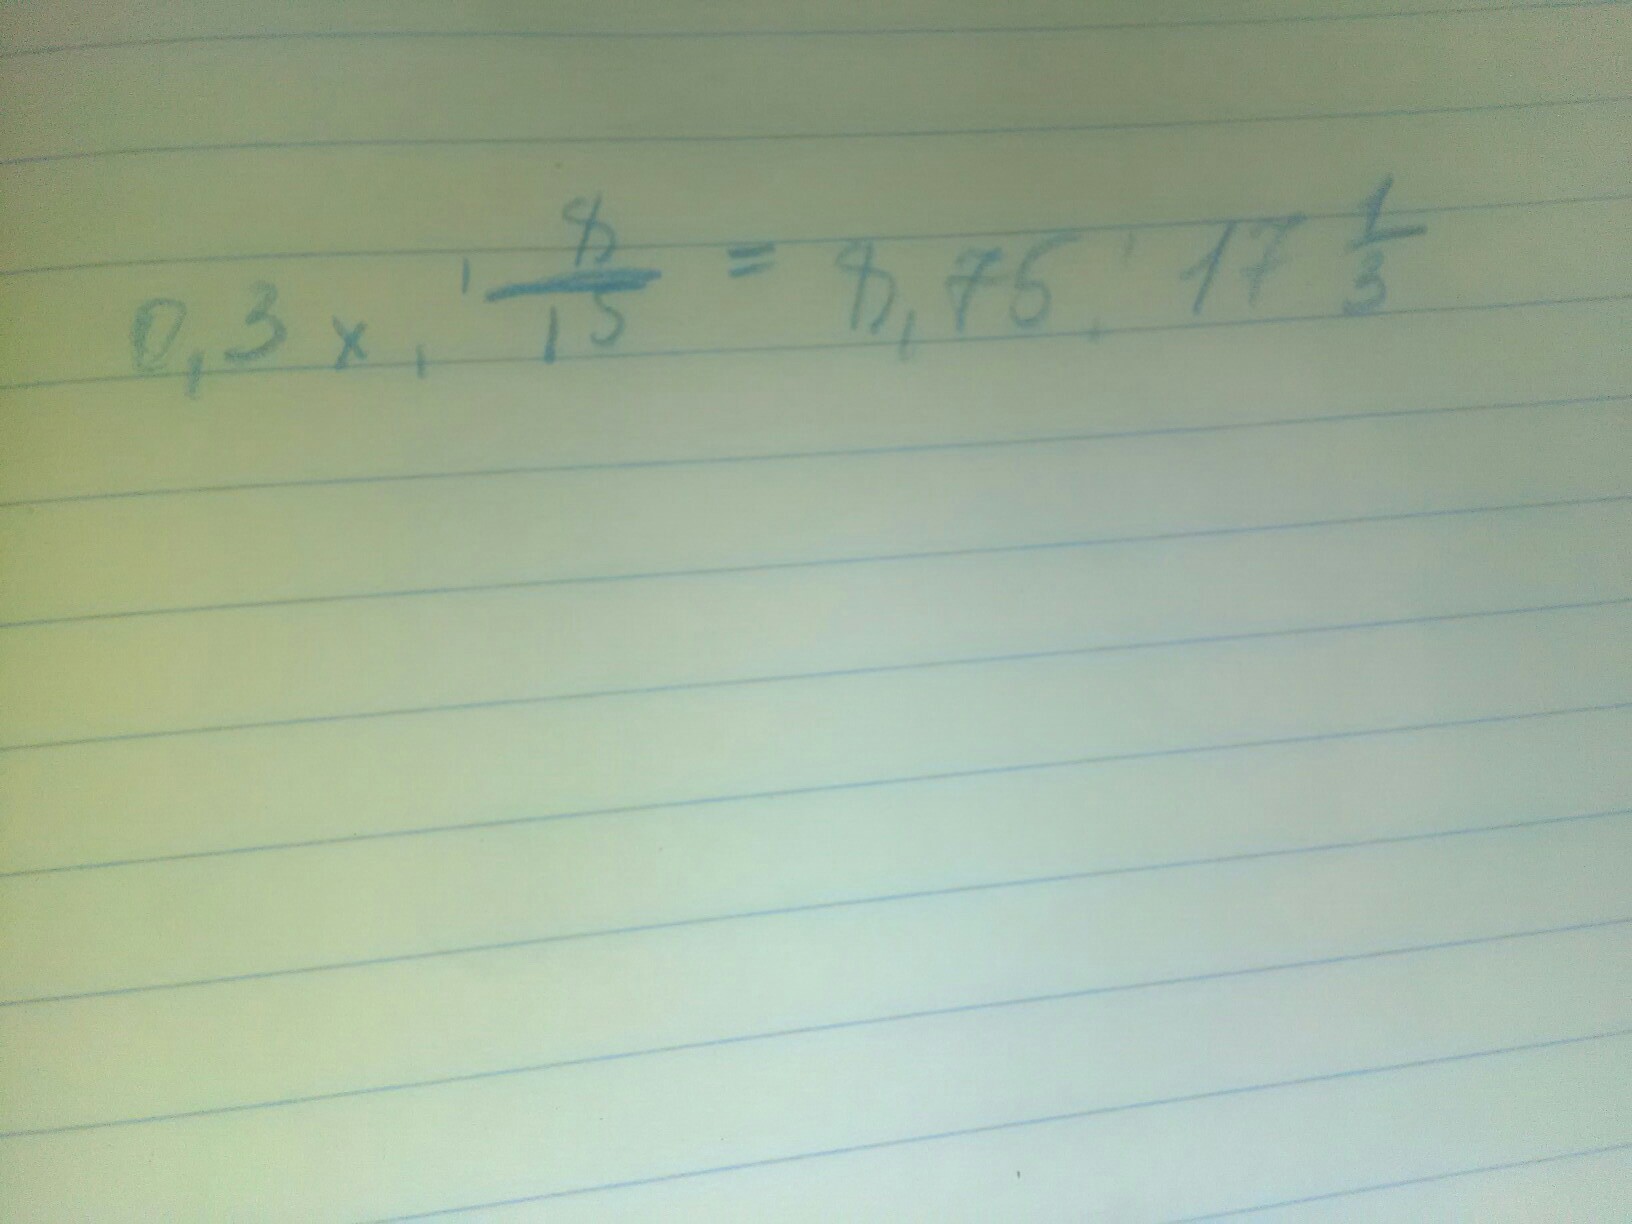 0,3 x : 8/15 = 8,75 : 17 1/3